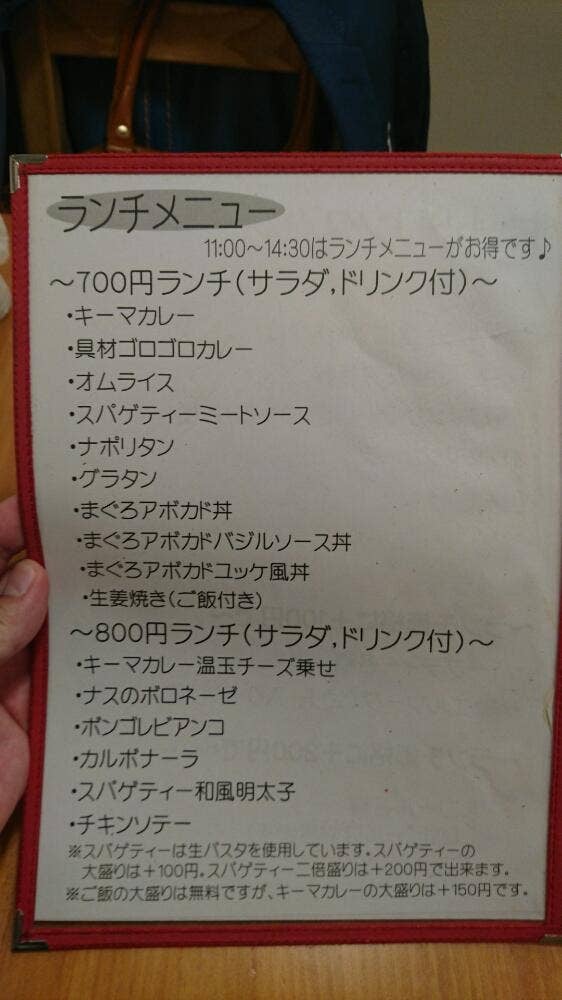 ランチメニュー
11:00～14:30はランチメニューがお得です♪
～700円ランチ(サラダ,ドリンク付)～
・キーマカレー
・具材ゴロゴロカレー
・オムライス
・スパゲティーミートソース
・ナポリタン
・グラタン
・まぐろアボカド丼
・まぐろアボカドバジルソース丼
・まぐろアボカドユッケ風丼
・生姜焼き(ご飯付き)
～800円ランチ(サラダ,ドリンク付)～
・キーマカレー温玉チーズ乗せ
・ナスのボロネーゼ
・ボンゴレビアンコ
・カルボナーラ
・スパゲティー和風明太子
・チキンソテー
※スパゲティーは生パスタを使用しています。スパゲティーの
大盛りは+100円。スパゲティー二倍盛りは+200円で出来ます。
※ご飯の大盛りは無料ですが、キーマカレーの大盛りは+150円です。